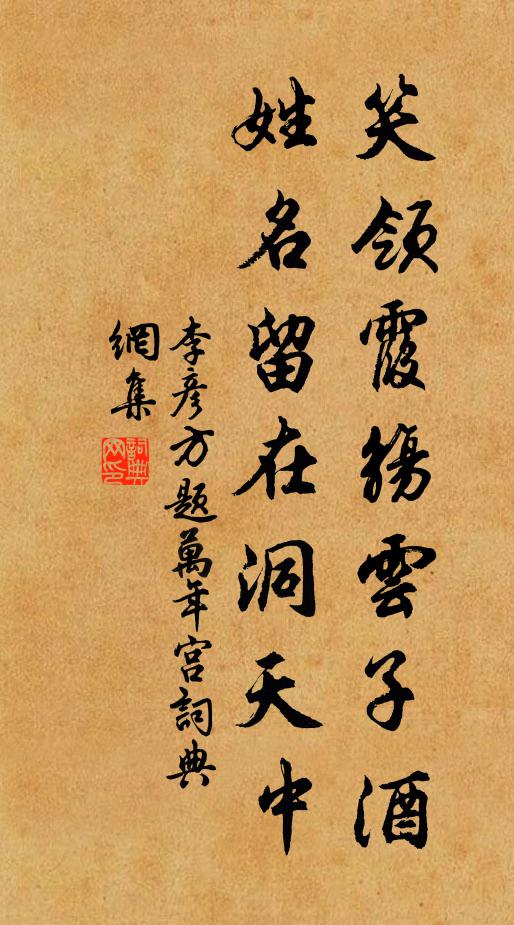 笑領霞觴雲子酒
姓名留在洞天中
李彦方題萬年宮詞典
網集
詞典網印